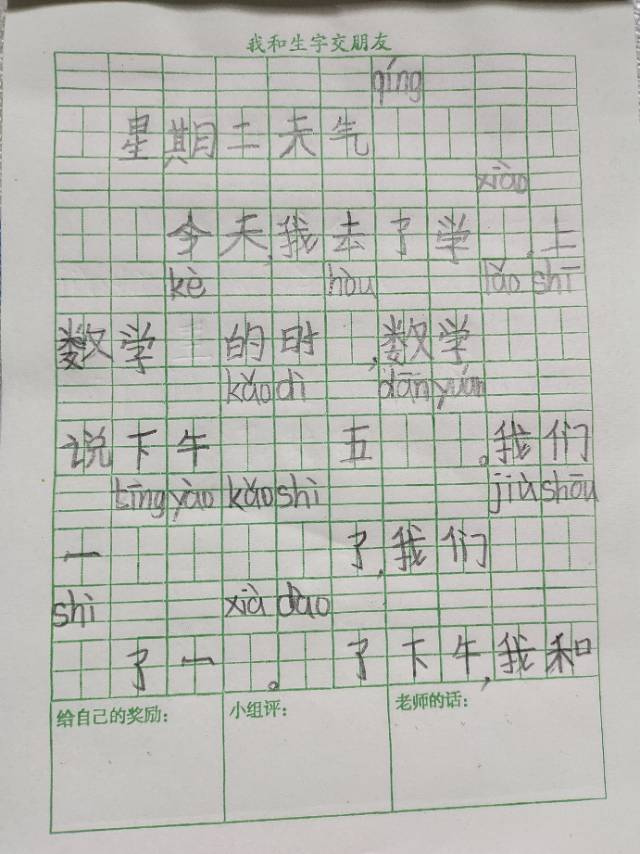 我和生字交朋友
qíng
星期二天气
xiào
今天,我去了学 ,上
kè hòu lǎo shī
数学 的时 ,数学
kǎo dì dān yuán
说下午 五 。我们
tīng yào kǎo shì jiù shōu
一 了,我们
shì xià dào
了一 。 了下午,我和
给自己的奖励:
小组评:
老师的话: